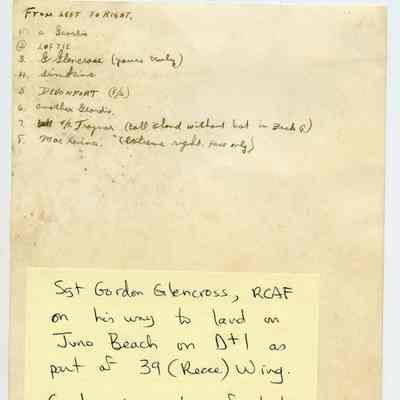 FROM LEFT TO RIGHT.
1. a Geordie
② LOFTIE
3. G Glencross (yours truly)
4. Simkins
5. DEVONPORT (F/O)
6. another Geordie.
7. F/O Traynor (tall blond without hat in back)
8. Mac (Extreme right. Face only)
Sgt Gordon Glencross, RCAF
on his way to land on
Juno Beach on D+1 as
part of 39 (Recce) Wing.